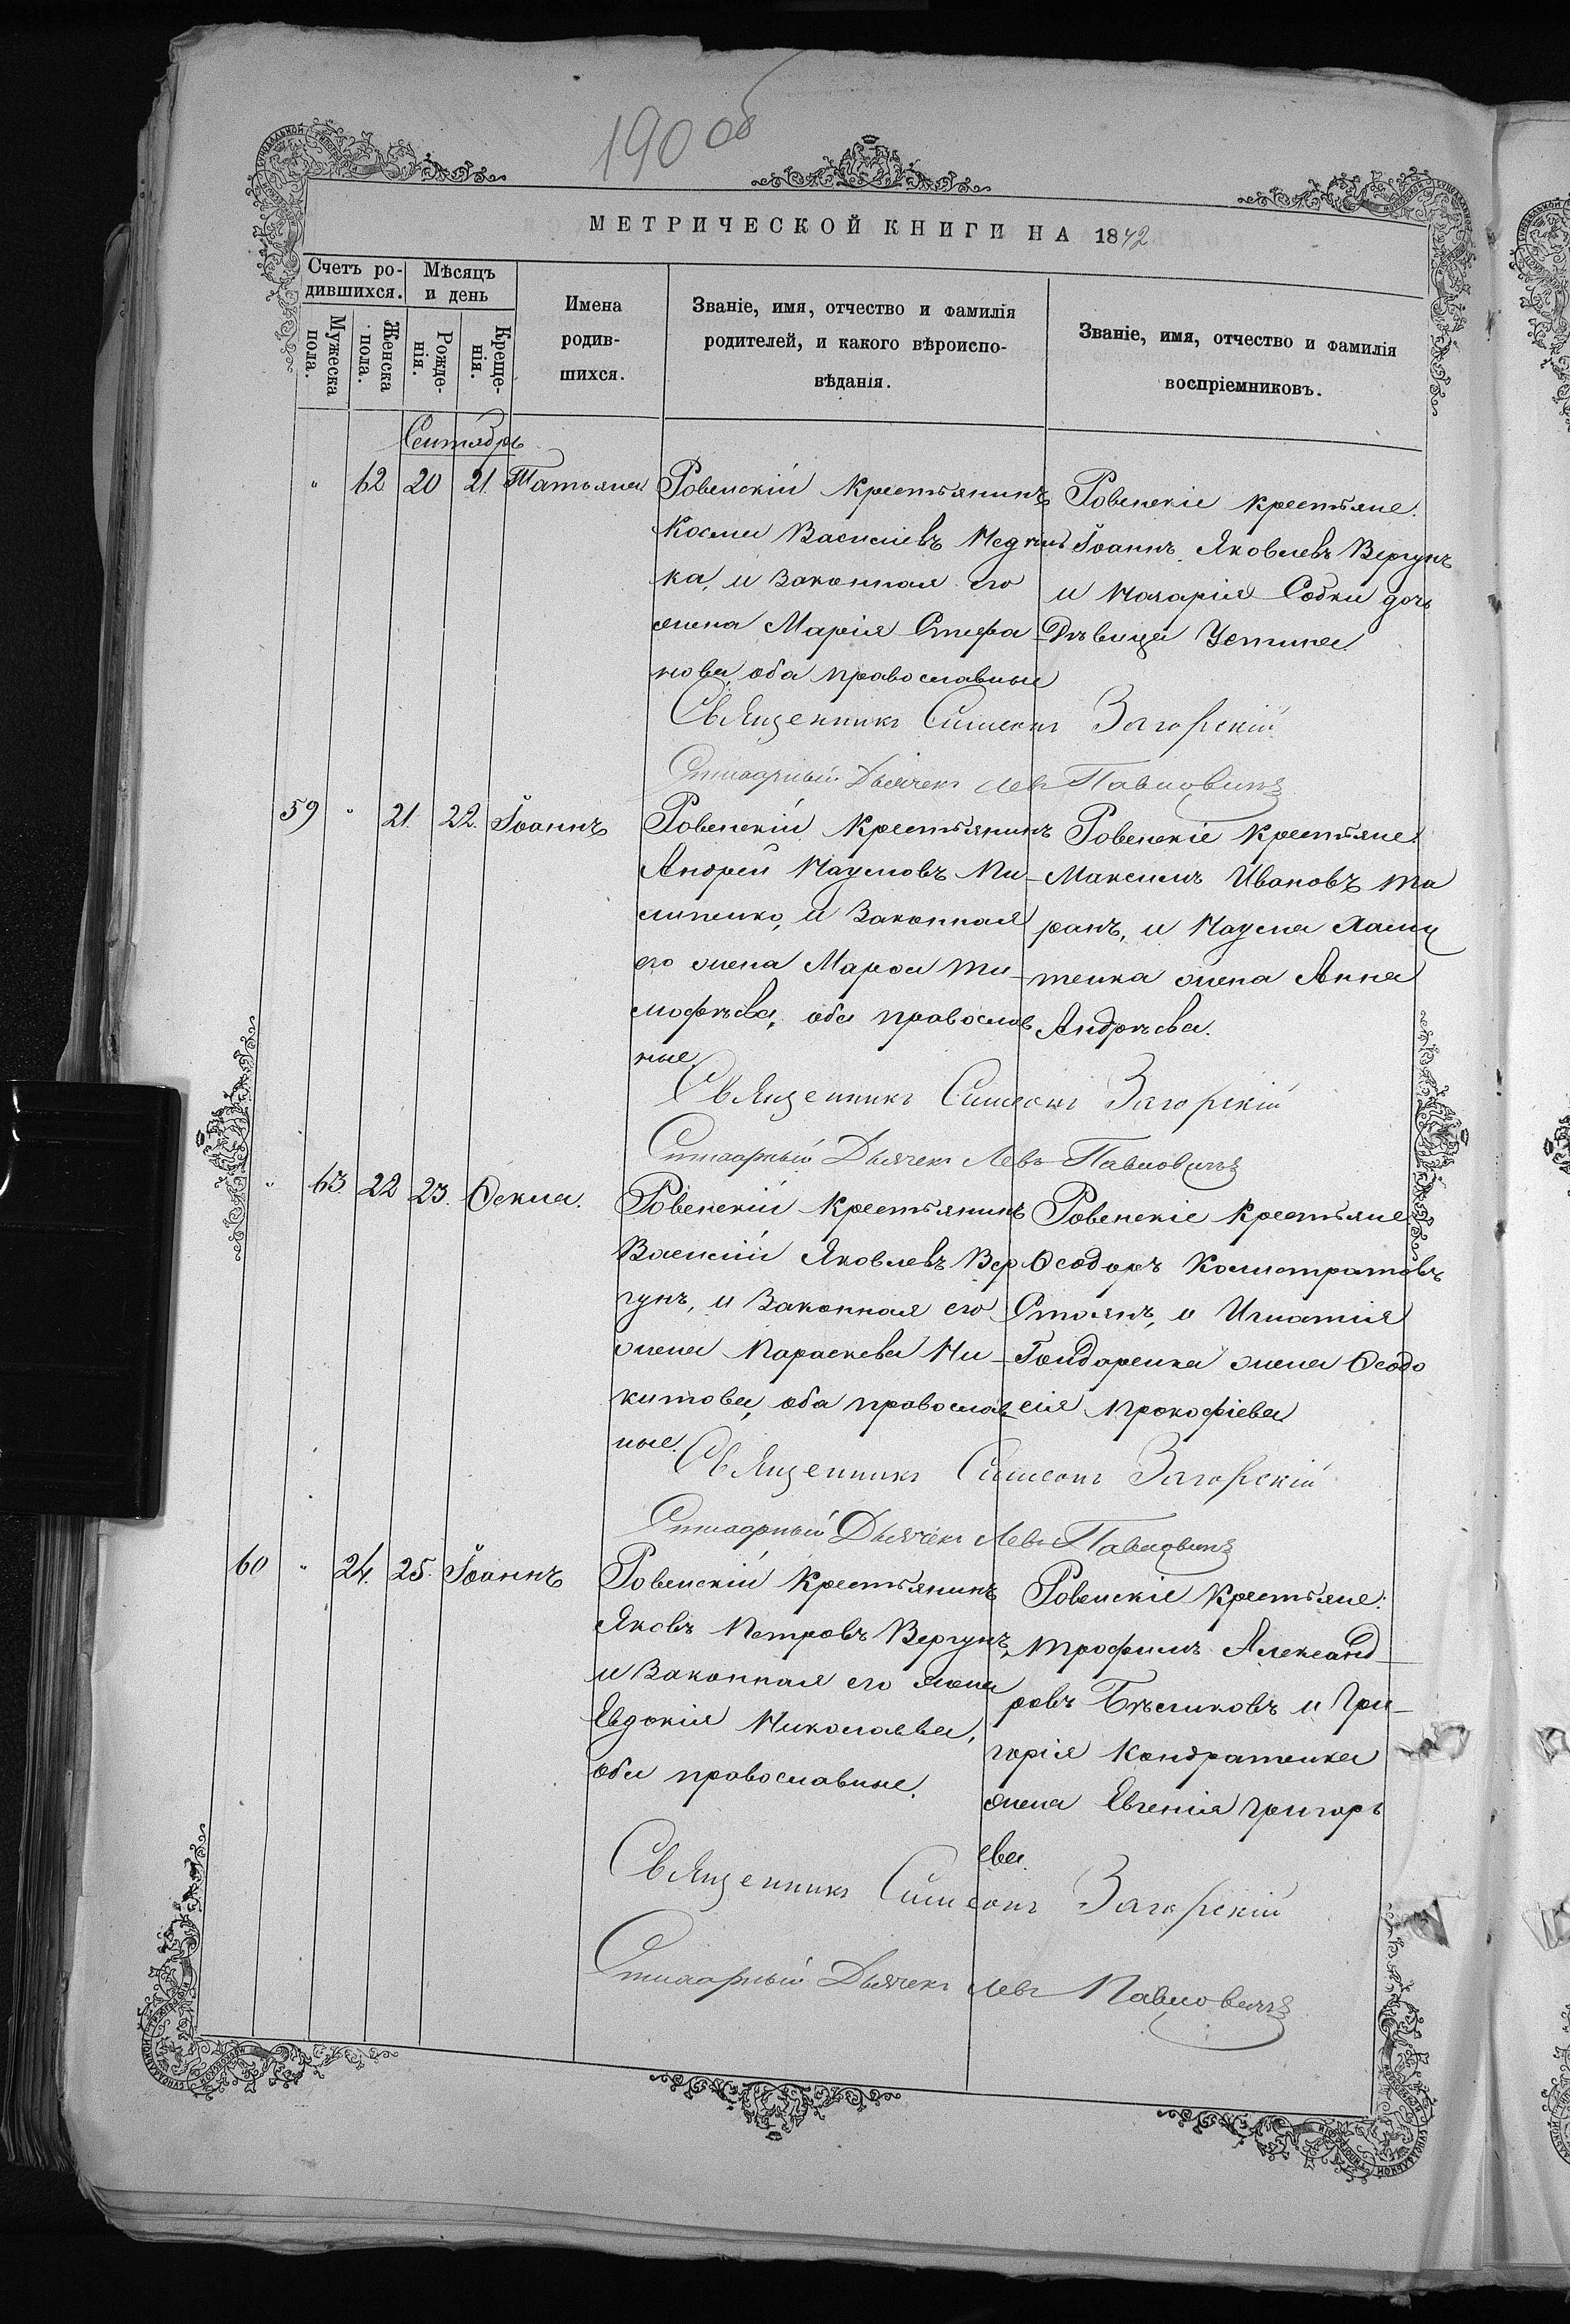 190 об
МЕТРИЧЕСКОЙ КНИГИ НА 1872
Счетъ ро-
дившихся.
Мѣсяцъ
и день
Мужеска
пола.
Женска
пола.
Рожде-
нія.
Креще-
нія.
Имена
родив-
шихся.
Званіе, имя, отчество и фамилія
родителей, и какого вѣроиспо-
вѣданія.
Званіе, имя, отчество и фамилія
воспріемниковъ.
Сентябрь
" 62 20 21. Татьяна
Ровенскій крестьянинъ
Косма Василіевъ
ка, и законная его
жена Марія Стефа-
нова, оба православные
Ровенскіе крестьяне:
Іоаннъ Яковлевъ Вергунъ
и Назарія Собки дочь
Дѣвица Устина
Священникъ Симеонъ Загорскій
Дьячекъ Левъ Павловичъ
59 " 21. 22. Іоаннъ
Ровенскій крестьянинъ
Андрей Наумовъ Пи-
липенко, и законная
его жена Марѳа Ти-
мофѣева, оба православ
ные.
Ровенскіе крестьяне:
Максимъ Ивановъ Та
ранъ, и Наума
тенка жена Анна
Андрѣева.
Священникъ Симеонъ Загорскій
Дьячекъ Левъ Павловичъ
" 63. 22 23. Ѳекла.
Ровенскій крестьянинъ
Василій Яковлевъ Вер
гунъ, и законная его
жена Параскева Ни-
китова, оба православ
ные.
Ровенскіе крестьяне:
Ѳеодоръ Калистратовъ
Стоянъ, и Игнатія
Гондаренка жена Ѳеодо
сія Прокофіева
Священникъ Симеонъ Загорскій
Дьячекъ Левъ Павловичъ
60 " 24. 25. Іоаннъ
Ровенскій крестьянинъ
Яковъ Петровъ Вергунъ,
и законная его жена
Евдокія Николаева,
оба православные.
Ровенскіе крестьяне:
Трофимъ Александ-
ровъ Бѣликовъ и Гри-
горія Кондратенка
жена Евгенія Григорь
ева.
Священникъ Симеонъ Загорскій
Дьячекъ Левъ Павловичъ